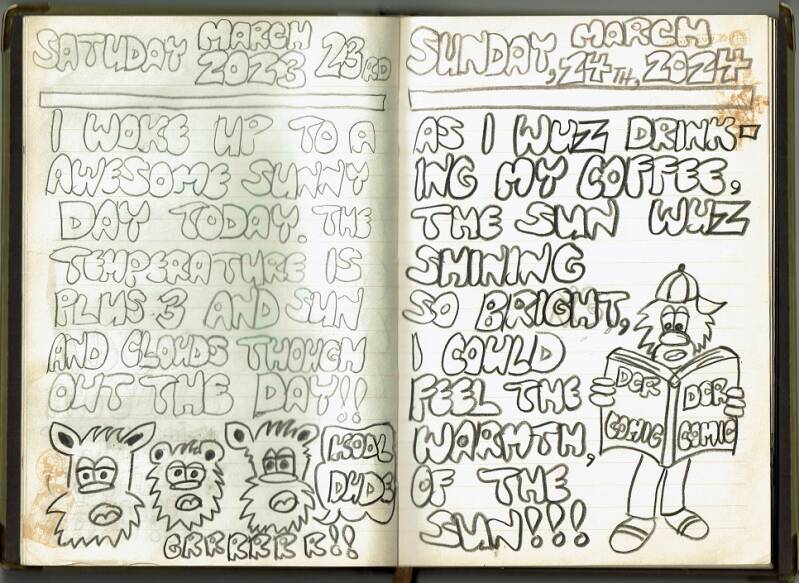 SATUDAY MARCH
2023 23RD
I WOKE UP TO A
AWESOME SUNNY
DAY TODAY. THE
TEMPERATURE IS
PLUS 3 AND SUN
AND CLOUDS THOUGH
OUT THE DAY!!
KOOL
DUDE
GRRRRR!!
SUNDAY MARCH
,24TH, 2024
AS I WUZ DRINK-
ING MY COFFEE,
THE SUN WUZ
SHINING
SO BRIGHT,
I COULD
FEEL THE
WARMTH,
OF THE
SUN!!!
DOR
COMIC
DOR
COMIC